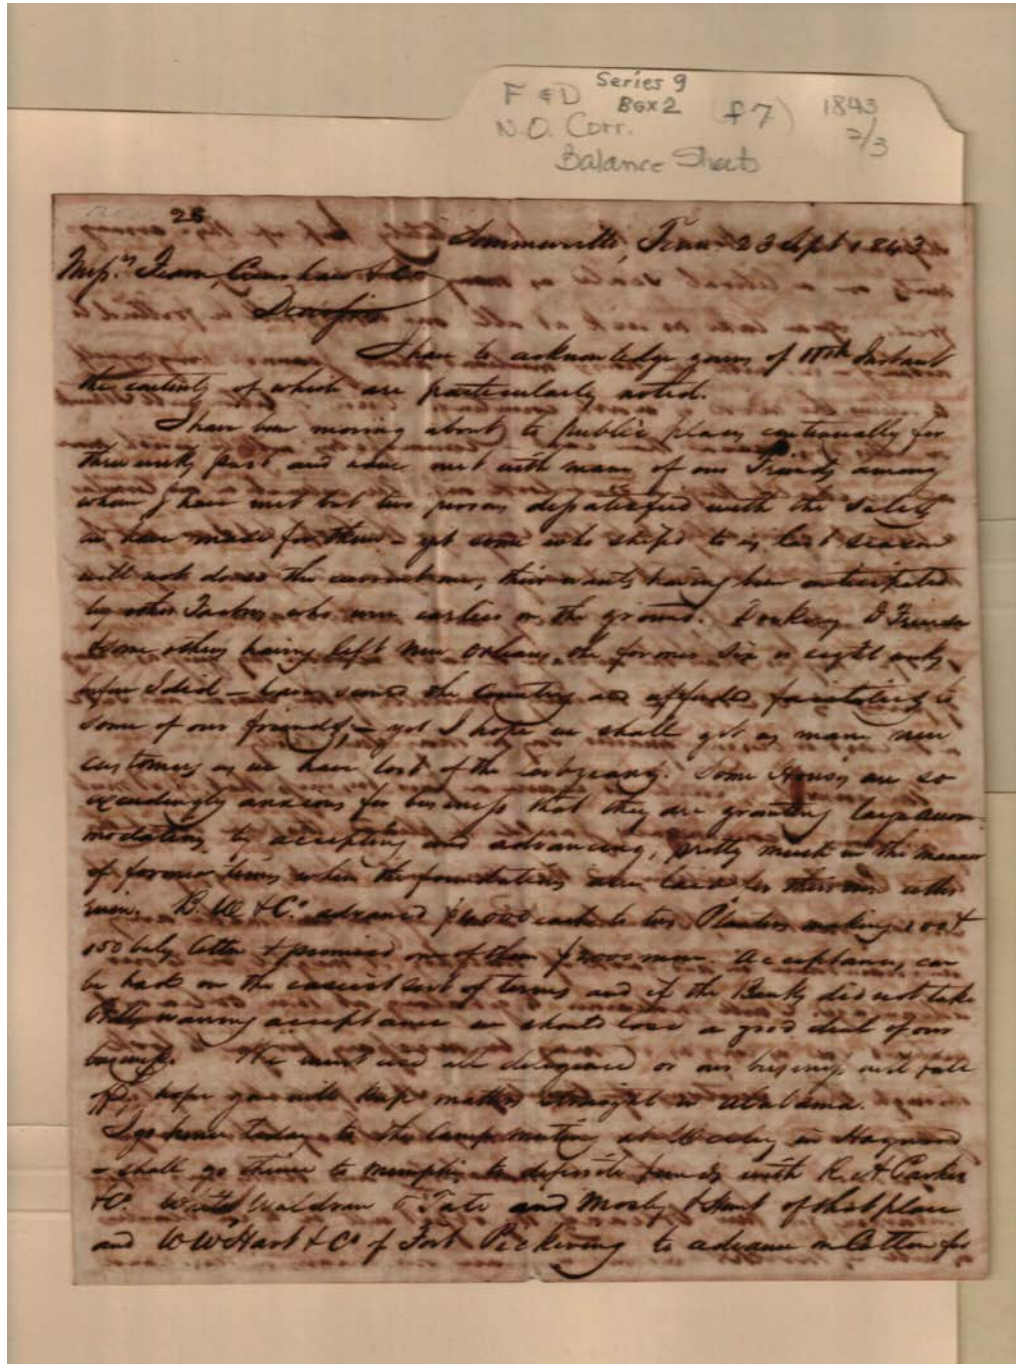 F & D Series 9
Box 2 (f 7) 1843
N.O. Corr. 2/3
Balance Sheets
25
Sommerville, Tenn 23 Sept 1843
Messrs Fearn, Crenshaw & Co
Dear Sirs
I have to acknowledge yours of 18th Instant
the contents of which are particularly noted.
I have been moving about to public places continually for
three weeks past and have met with many of our Friends among
whom I have met but two persons dissatisfied with the sales
we have made for them – yet some who shiped to us last season
will not do so the current one, their wants having been anticipated
by other Factors who were earlier on the ground.
& some others having left New Orleans, the former six or eight weeks
before I did – have the Country and afforded facilities to
some of our friends, – yet I hope we shall get as many new
customers as we have lost of the . Some Houses are so
exceedingly anxious for business that they are granting large accom-
modations by accepting and advancing, pretty much in the manner
of former times when the foundations were laid for
ruin. B. W & Co. advanced $ cash to two Planters making 100 &
150 bales Cotton & promised one of them $ more. Acceptances can
be had on the easiest sort of terms and if the Banks did not take
acceptances we should lose a good deal of our
business. We must use all diligence or our business will fall
off, hope you will keep matters straight in Alabama.
I go hence today to the Camp meeting at Wesley in Haywood
– shall go thence to Memphis to deposite funds with R. A Parker
& Co. Waldran & Tate and Mosby & Hunt of that place
and W W Hart & Co of Fort Pickering to advance on Cotton for